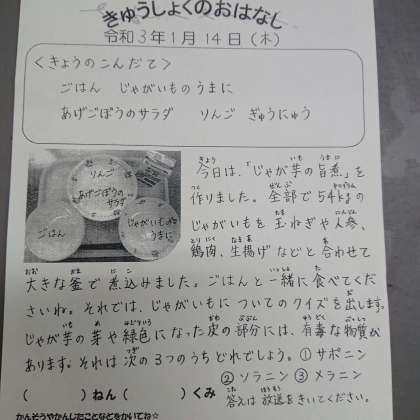 きゅうしょくのおはなし
令和3年1月14日(木)
<きょうのこんだて>
ごはん じゃがいものうまに
あげごぼうのサラダ りんご ぎゅうにゅう
りんご
あげごぼうの
サラダ
ごはん
じゃがいもの
うまに
今日は、「じゃが芋の旨煮」を
作りました。全部で54kgの
じゃがいもを玉ねぎや人参、
鶏肉、生揚げなどと合わせて
大きな釜で煮込みました。ごはんと一緒に食べてくだ
さいね。それでは、じゃがいもについてのクイズを出します。
じゃが芋の芽や緑色になった皮の部分には、有毒な物質が
あります。それは次の3つのうちどれでしょう。①サポニン
②ソラニン ③メラニン
( )ねん( )くみ 答えは放送をきいてください。
かんそうやかんじたことなどをかいてね☆